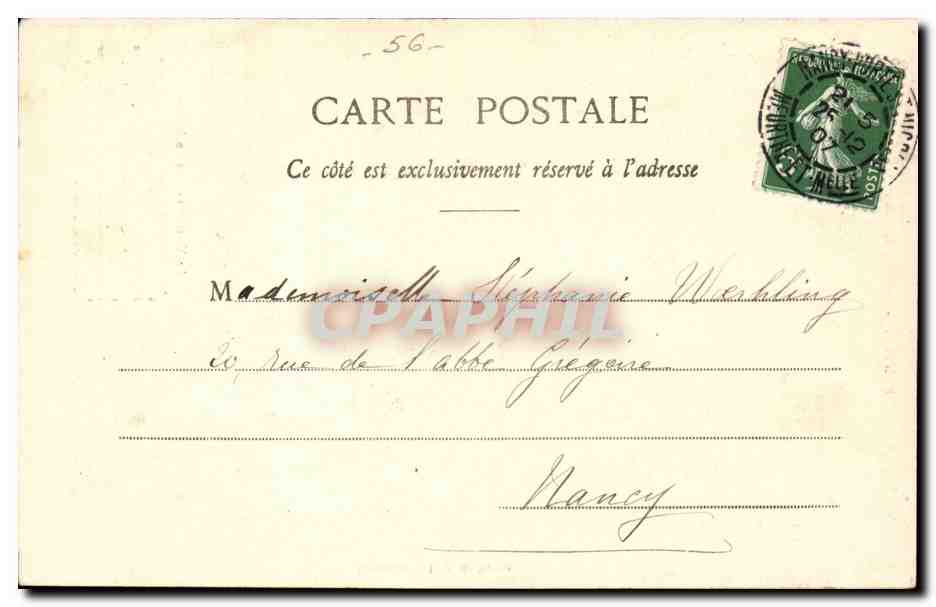 - 56 -
CARTE POSTALE
Ce côté est exclusivement réservé à l'adresse
Mademoiselle Stéphanie Werhling
CPAPHIL
20, rue de l'abbé Grégoire
Nancy
MEURTHE-ET-MELLE
21 5
25 -12
07
POSTES